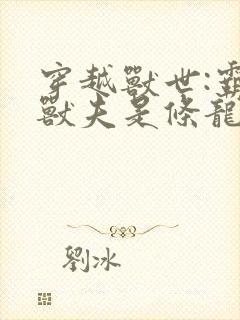 穿越獸世:霸
獸夫是條龍
劉冰